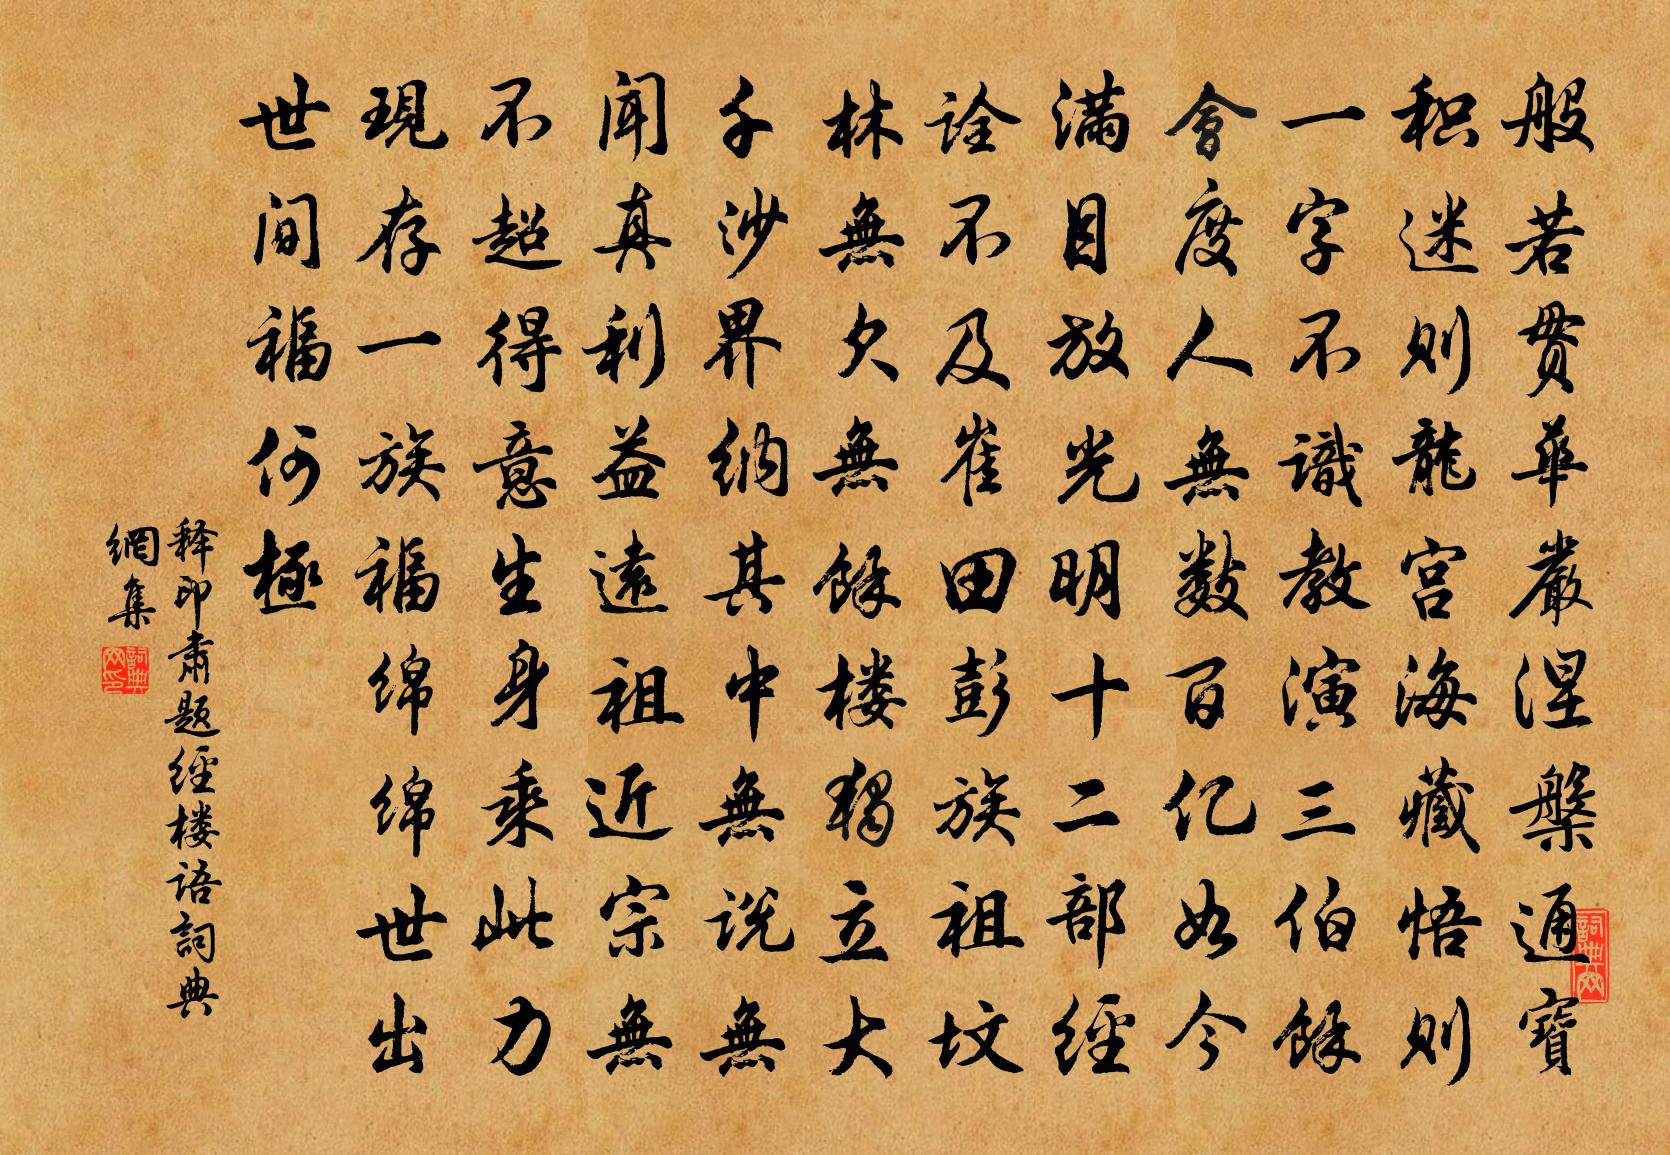 般若贯華嚴涅槃通寶
积迷则龍宫海藏悟则
一字不識教演三伯餘
會度人無数百亿如今
满目放光明十二部經
诠不及崔田彭族祖坟
林無欠無餘楼獨立大
千沙界纳其中無说無
聞真利益遠祖近宗無
不超得意生身乘此力
現存一族福绵绵世出
世间福何極
释印肃题經楼语詞典
網集
詞典網
詞典網印